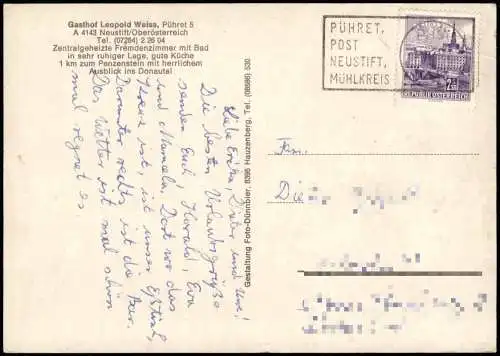 Gasthof Leopold Weiss, Pühret 5
A 4143 Neustift/Oberösterreich
Tel. (07284) 2 26 04
Zentralgeheizte Fremdenzimmer mit Bad
in sehr ruhiger Lage, gute Küche
1 km zum Penzenstein mit herrlichem
Ausblick ins Donautal
PÜHRET,
POST
NEUSTIFT,
MÜHLKREIS
REPUBLIK ÖSTERREICH
Liebe Erika, Dieter und Uwe!
Die besten Urlaubsgrüße
senden Euch Harald, Eva
und Manuela. Dort wo das
ist, ist unser Eßtisch,
Darunter rechts ist die Bar.
Das Wetter ist mal schön
mal regnet es
Gestaltung Foto-Dünnbier, 8395 Hauzenberg, Tel. (08586) 530
Fam.
Die